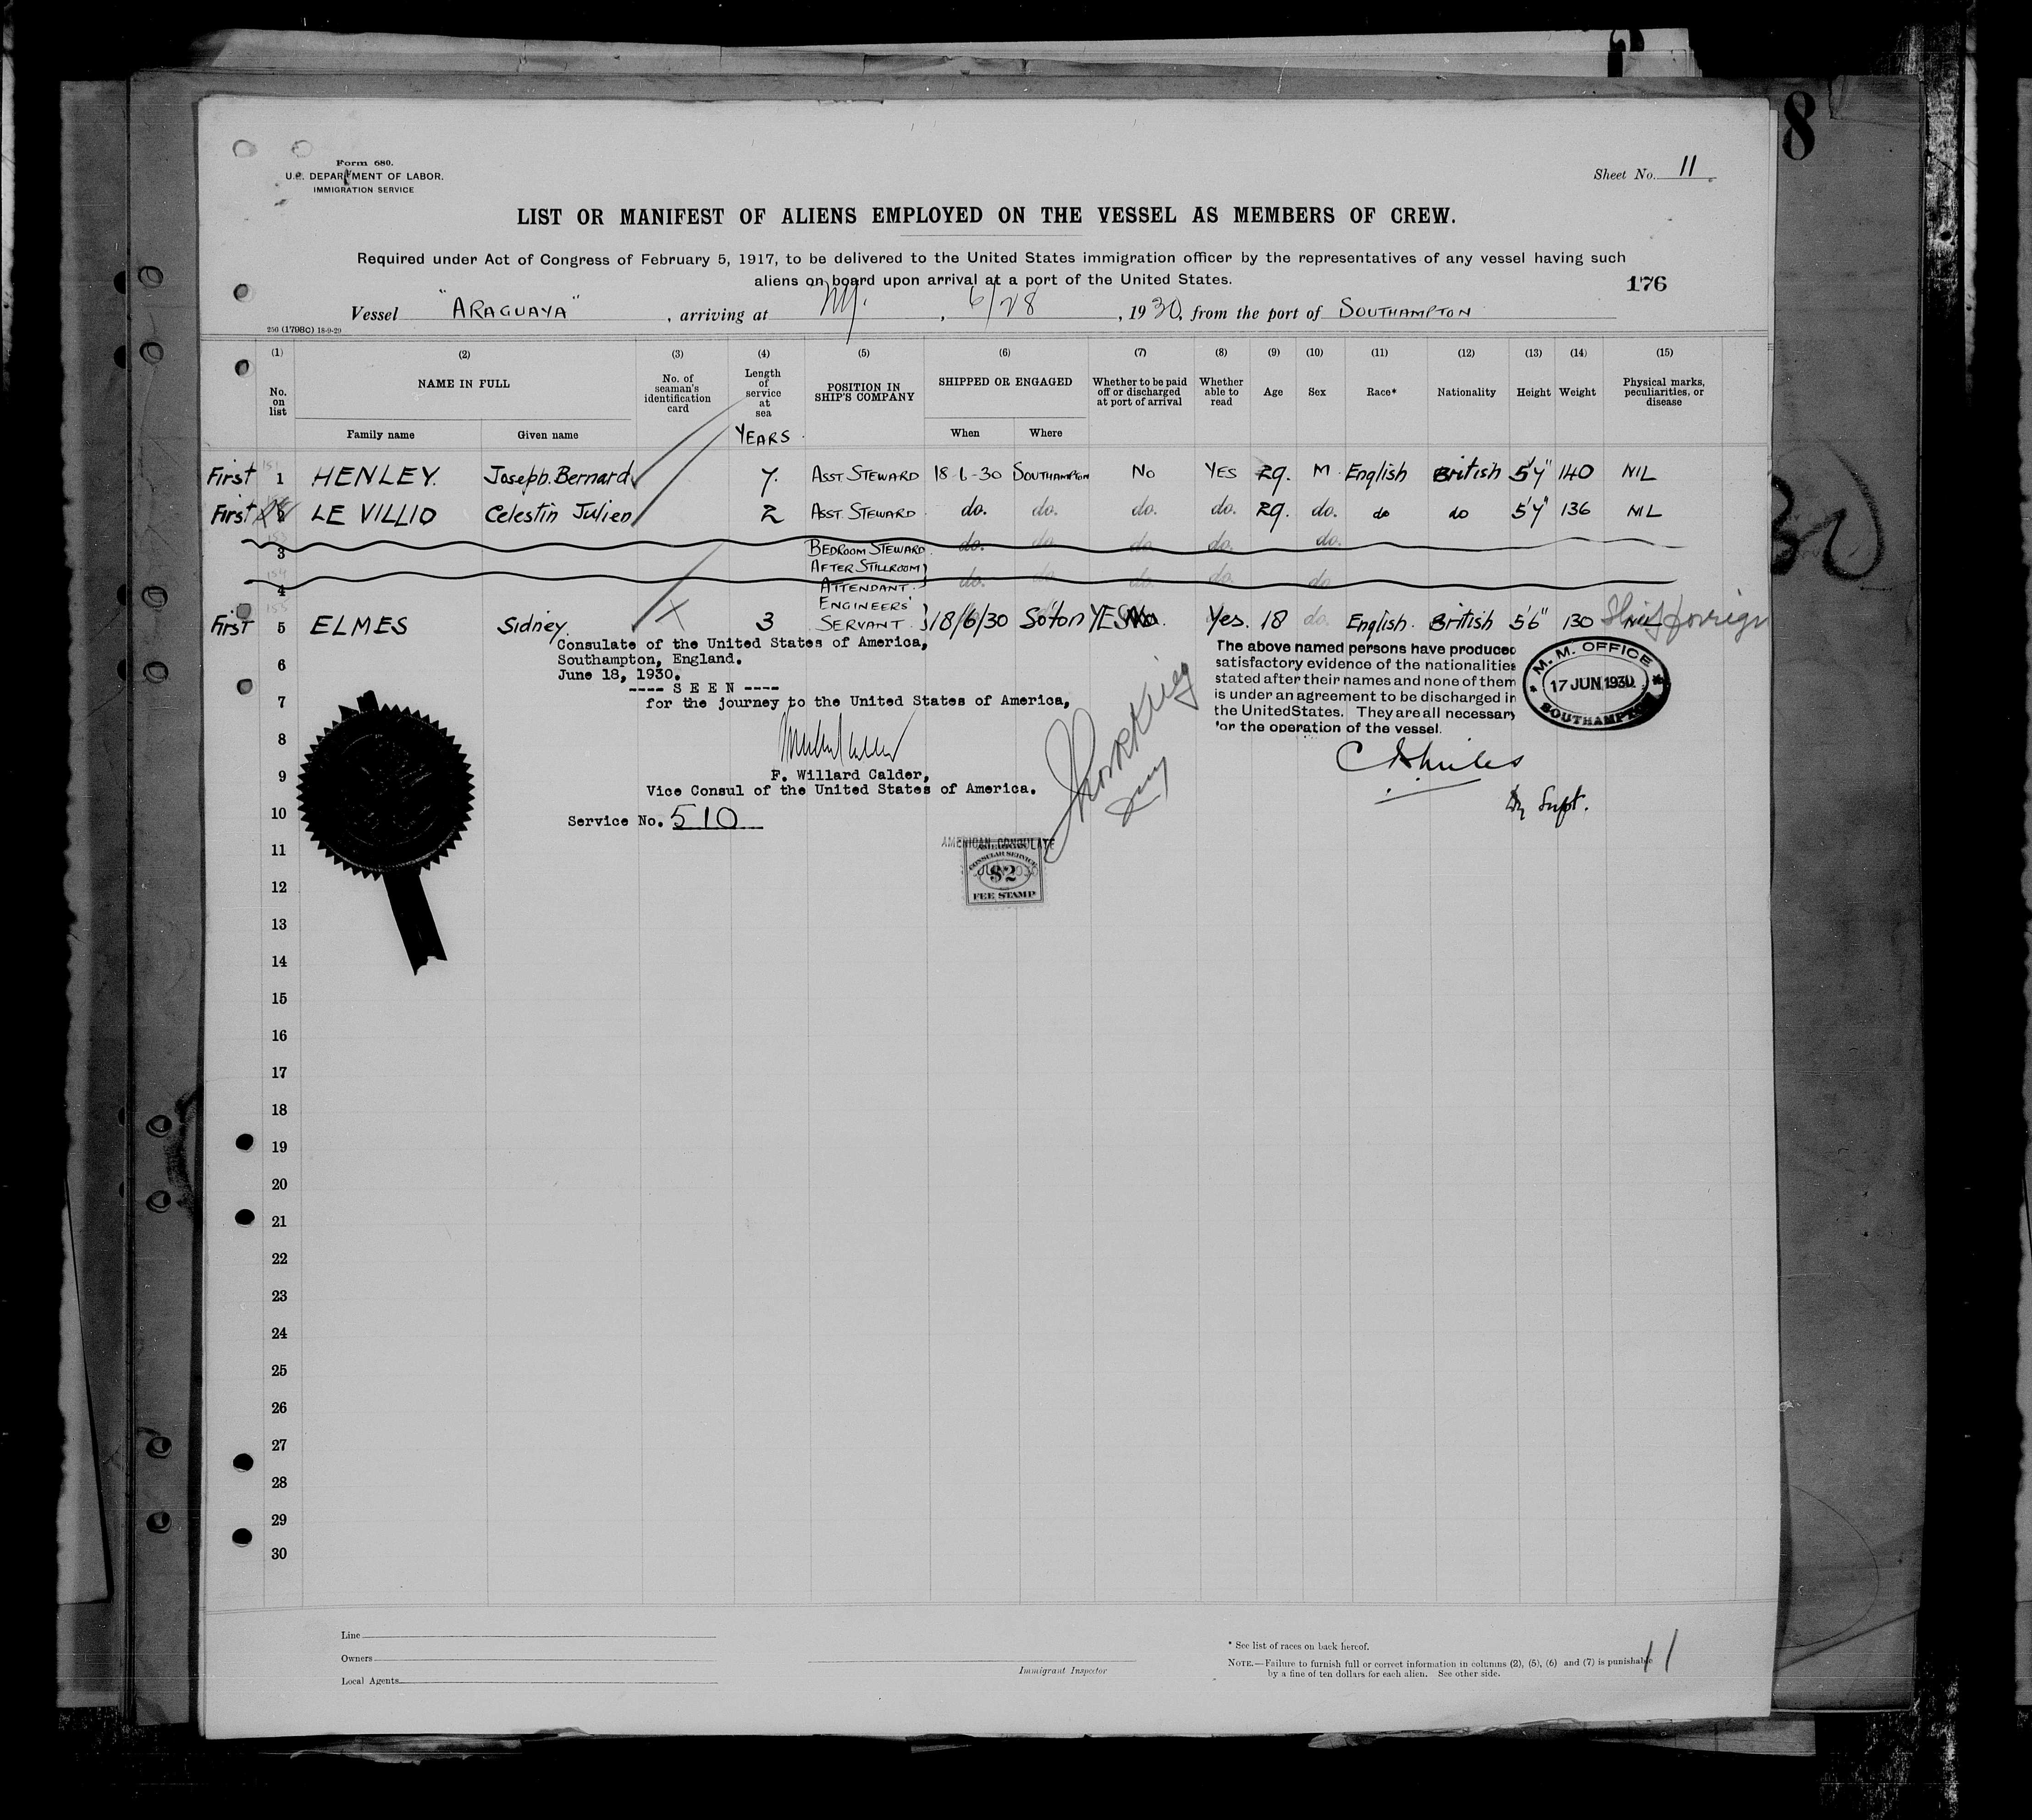 8
Form 680.
U.S. DEPARTMENT OF LABOR.
IMMIGRATION SERVICE
Sheet No. 11
LIST OR MANIFEST OF ALIENS EMPLOYED ON THE VESSEL AS MEMBERS OF CREW.
Required under Act of Congress of February 5, 1917, to be delivered to the United States immigration officer by the representatives of any vessel having such
aliens on board upon arrival at a port of the United States.
176
Vessel "ARAGUAYA", arriving at NY., 6/28, 1930, from the port of SOUTHAMPTON
256 (1798C) 18-9-29
(1) (2) (3) (4) (5) (6) (7) (8) (9) (10) (11) (12) (13) (14) (15)
No. on list NAME IN FULL No. of seaman's identification card Length of service at sea POSITION IN SHIP'S COMPANY SHIPPED OR ENGAGED Whether to be paid off or discharged at port of arrival Whether able to read Age Sex Race* Nationality Height Weight Physical marks, peculiarities, or disease
Family name Given name YEARS When Where
First 1 HENLEY. Joseph. Bernard 7. ASST. STEWARD 18-6-30 SOUTHAMPTON No YES 29. M English British 5'7" 140 NIL
First LE VILLIO Celestin Julien 2 ASST. STEWARD do. do. do. do. 29. do. do do 5'7" 136 NIL
3 BEDROOM STEWARD do. do. do. do. do.
4 AFTER STILLROOM ATTENDANT. do. do. do. do. do
First 5 ELMES Sidney. 3 ENGINEERS' SERVANT. 18/6/30 So'ton YES No. Yes. 18 do. English. British 5'6" 130 NIL foreign
Consulate of the United States of America,
Southampton, England.
June 18, 1930.
---- S E E N ----
for the journey to the United States of America,
F. Willard Calder,
Vice Consul of the United States of America.
Service No. 510
AMERICAN CONSULATE
CONSULAR SERVICE
$2
FEE STAMP
The above named persons have produced
satisfactory evidence of the nationalities
stated after their names and none of them
is under an agreement to be discharged in
the United States. They are all necessary
for the operation of the vessel.
M. M. OFFICE
17 JUN 1930
SOUTHAMPTON
Supt.
6
7
8
9
10
11
12
13
14
15
16
17
18
19
20
21
22
23
24
25
26
27
28
29
30
Line
Owners
Local Agents
Immigrant Inspector
* See list of races on back hereof.
NOTE.—Failure to furnish full or correct information in columns (2), (5), (6) and (7) is punishable
by a fine of ten dollars for each alien. See other side.
11